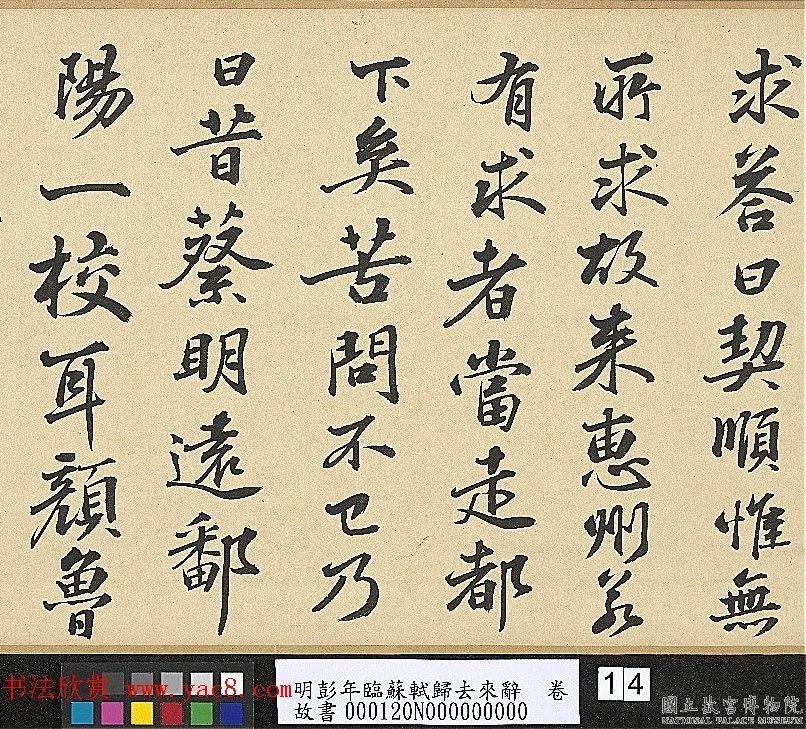 求荅曰契順惟無
所求故来惠州若
有求者當走都
下矣苦問不已乃
曰昔蔡明遠鄱
陽一校耳顏魯
书法欣赏 www.yac8.com
明彭年臨蘇軾歸去來辭 卷
故書000120N000000000
14
國立故宮博物院
NATIONAL PALACE MUSEUM